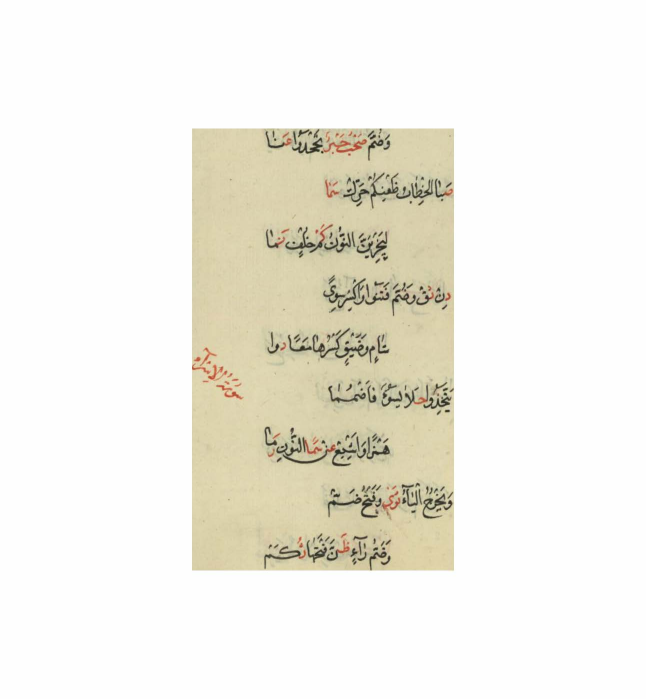 وَضَمَّ صَحْبُ حَبْرٌ يَجْحَدُوا غَنَا
صَبَا الخِطَابُ ظَعْنِكُمْ حَرِّكْ سَمَا
لَيَجْزِيَنَّ النُّونُ كَمْ خُلْفٍ نَمَا
دِنْ ثِقْ وَضُمَّ فَتَنُوا وَاكْسِرْ سِوَى
شَامٍ وَضَيْقٍ كَسْرُهَا مَعًا دَوا
سورة الإسراء
يَتَّخِذُوا حَلَا يَسُوءَ فَاضْمُمَا
هَمْزًا وَاَشْبِعْ عَنْ سَمَا النُّونُ رَمَا
وَيَخْرُجُ الْيَآءُ ثَوَى وَفَتْحُ ضَمّْ
وَضَمُّ رَآءٍ ظَنَّ فَتْحُهَا ثُكَمْ